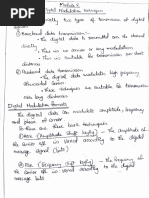 Module 5
Digital Modulation Techniques
basically two types of transmission of digital
signals.
i) Baseband data transmission:-
→ The digital data is transmitted on the channel
directly
→ There is no carrier or any modulation.
→ This is suitable for short distance
ii) Passband data transmission:-
→ The digital data modulates high frequency
sinusoidal carrier.
→ This is suitable for transmission
over long distances
Digital Modulation Formats
The digital data can modulate amplitude, frequency
and phase of carrier
→ There are three basic techniques
i) ASK (Amplitude Shift Keying) → The amplitude of
the carrier is varied according to the digital
message signal (bits)
ii) FSK (Frequency Shift Keying) → the frequency of
the carrier is varied according to the digital
message bits.